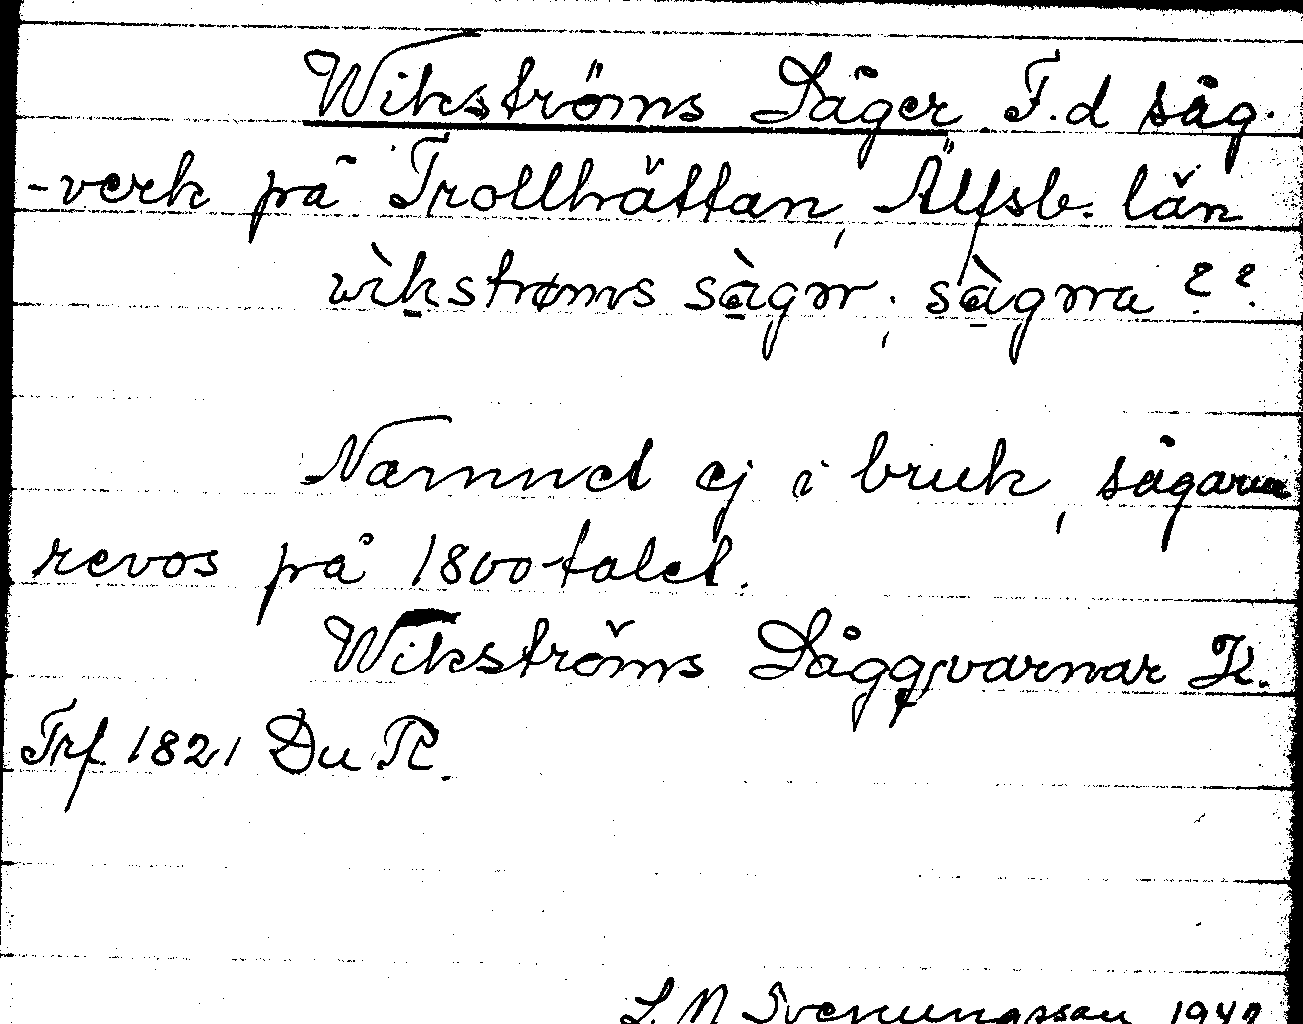 Wikströms Såger F.d såg-
-verk på Trollhättan, Älfsb. län
wìkstrøms sàgər, sàgəra ??
Namnet ej i bruk, sågarna
revos på 1800talet.
Wikströms Sågqvarnar K.
Trf 1821 Du R.
S. N Svenungsson 194